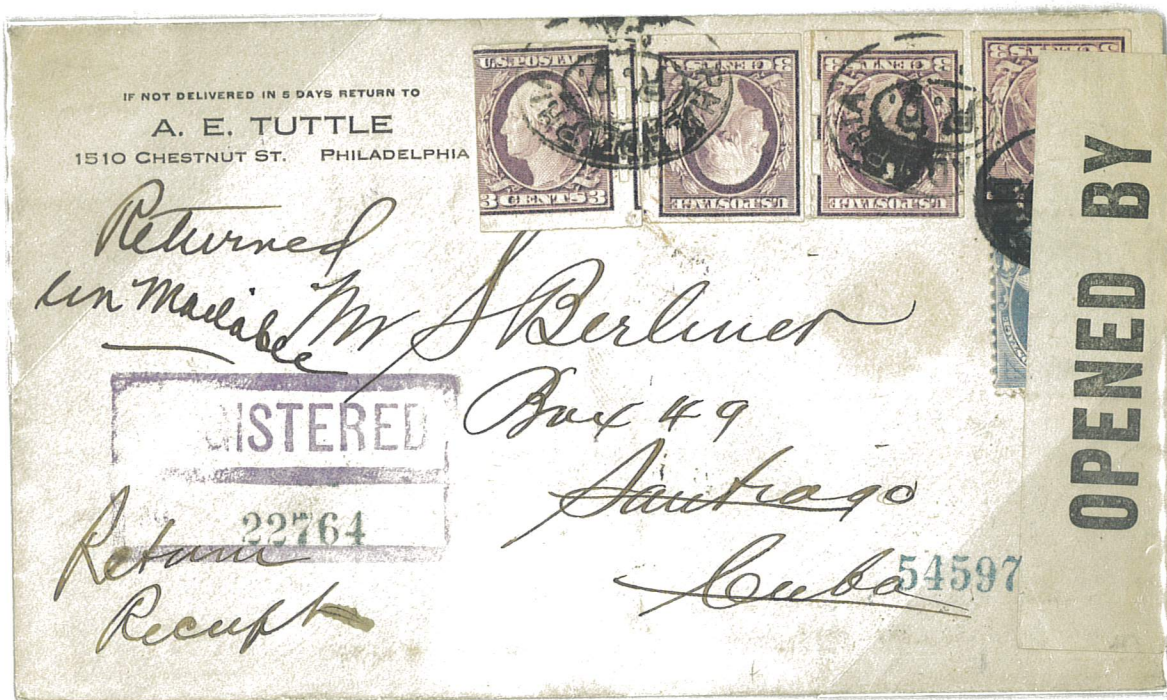 IF NOT DELIVERED IN 5 DAYS RETURN TO
A. E. TUTTLE
1510 CHESTNUT ST. PHILADELPHIA
U.S. POSTA
3 CENTS 3
3 CENTS 3
U.S. POSTAGE
3 CENTS 3
U.S. POSTAGE
CENTS 3
Returned
un Mailabee
Mr S Berliner
Box 49
Santiago
Cuba
ISTERED
22764
Return
Receipt
54597
OPENED BY